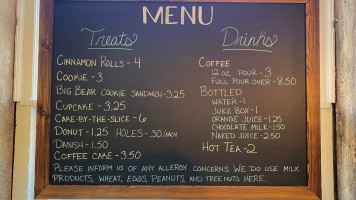 MENU
Treats
Cinnamon Rolls - 4
Cookie - 3
Big Bear Cookie Sandwich - 3.25
Cupcake - 3.25
Cake-by-the-slice - 6
Donut - 1.25 Holes - .30/each
Danish - 1.50
Coffee Cake - 3.50
Drinks
Coffee
12 oz. Pour - 3
Full Pour Over - 8.50
Bottled
Water - 1
Juice Box - 1
Orange Juice - 1.25
Chocolate Milk - 1.50
Naked Juice - 2.50
Hot Tea - 2
Please inform us of any allergy concerns. We do use milk
products, wheat, eggs, peanuts, and tree nuts here.